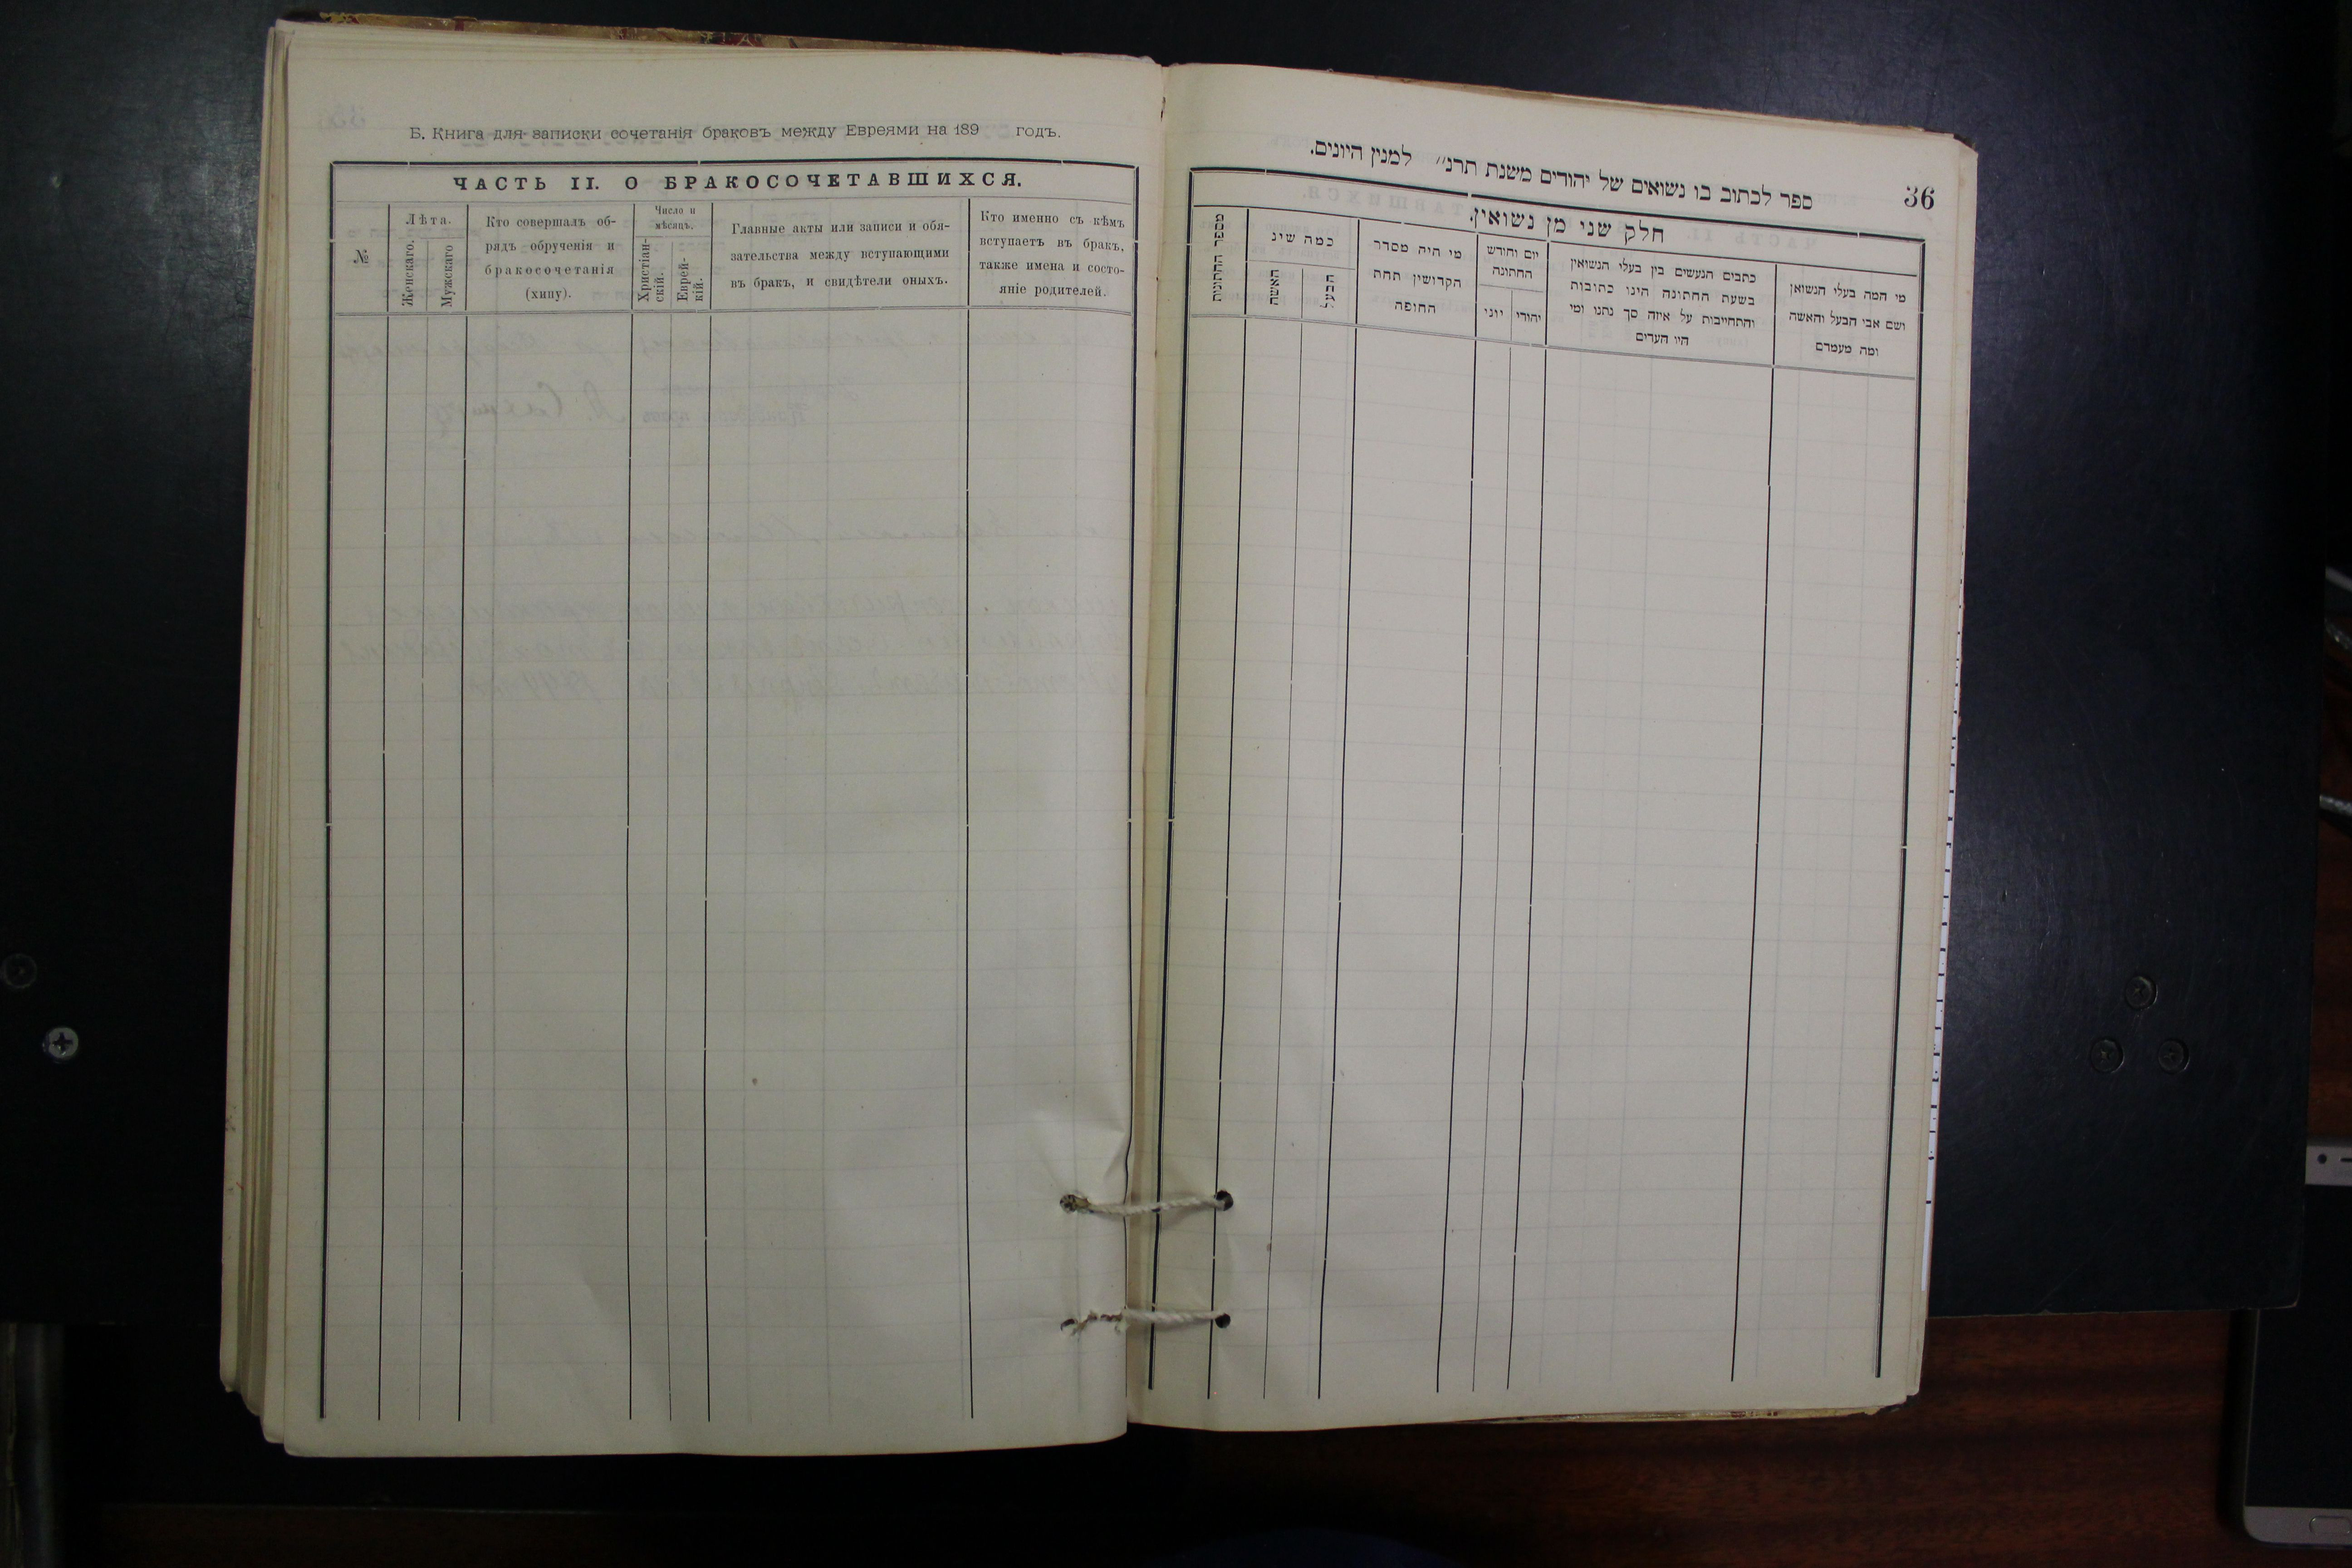 Б. Книга для записки сочетанія браковъ между Евреями на 189 годъ.
ЧАСТЬ II. О БРАКОСОЧЕТАВШИХСЯ.
№
Лѣта.
Женскаго.
Мужскаго
Кто совершалъ об-
рядъ обрученія и
бракосочетанія
(хипу).
Число и
мѣсяцъ.
Христіан-
скій.
Еврей-
кій.
Главные акты или записи и обя-
зательства между вступающими
въ бракъ, и свидѣтели оныхъ.
Кто именно съ кѣмъ
вступаетъ въ бракъ,
также имена и состо-
яніе родителей.
36
ספר לכתוב בו נשואים של יהודים משנת תרנ״ למנין היונים.
חלק שני מן נשואין.
מספר החתונות
כמה שינ
האשה
הבעל
מי היה מסדר
הקדושין תחת
החופה
יום וחודש
החתונה
יוני
יהודי
כתבים הנעשים בין בעלי הנשואין
בשעת החתונה הינו כתובות
והתחייבות על איזה סך נתנו ומי
היו העדים
מי המה בעלי הנשואן
ושם אבי הבעל והאשה
ומה מעמדם